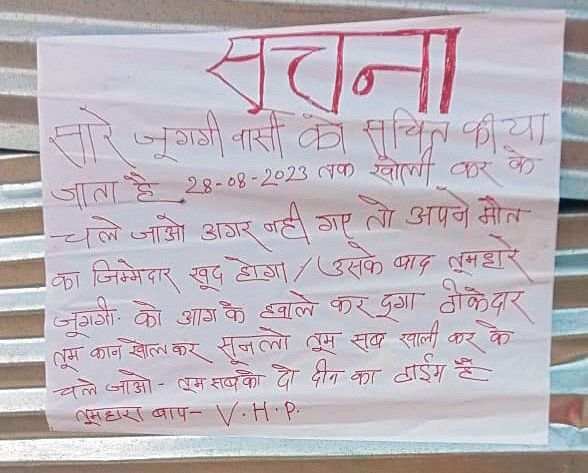 सुचना
सारे जुगगी वासी को सुचित कीया
जाता है 28-08-2023 तक खाली कर के
चले जाओ अगर नही गए तो अपने मौत
का जिम्मेदार खुद होगा / उसके बाद तूमहारे
जुगगी. को आग के हवाले कर दुगा ठीकेदार
तूम कान खोलकर सुनलो तूम सब खाली कर के
चले जाओ - तूम सबको दो दीन का टाईम है
तूमहारा बाप - V.H.P.